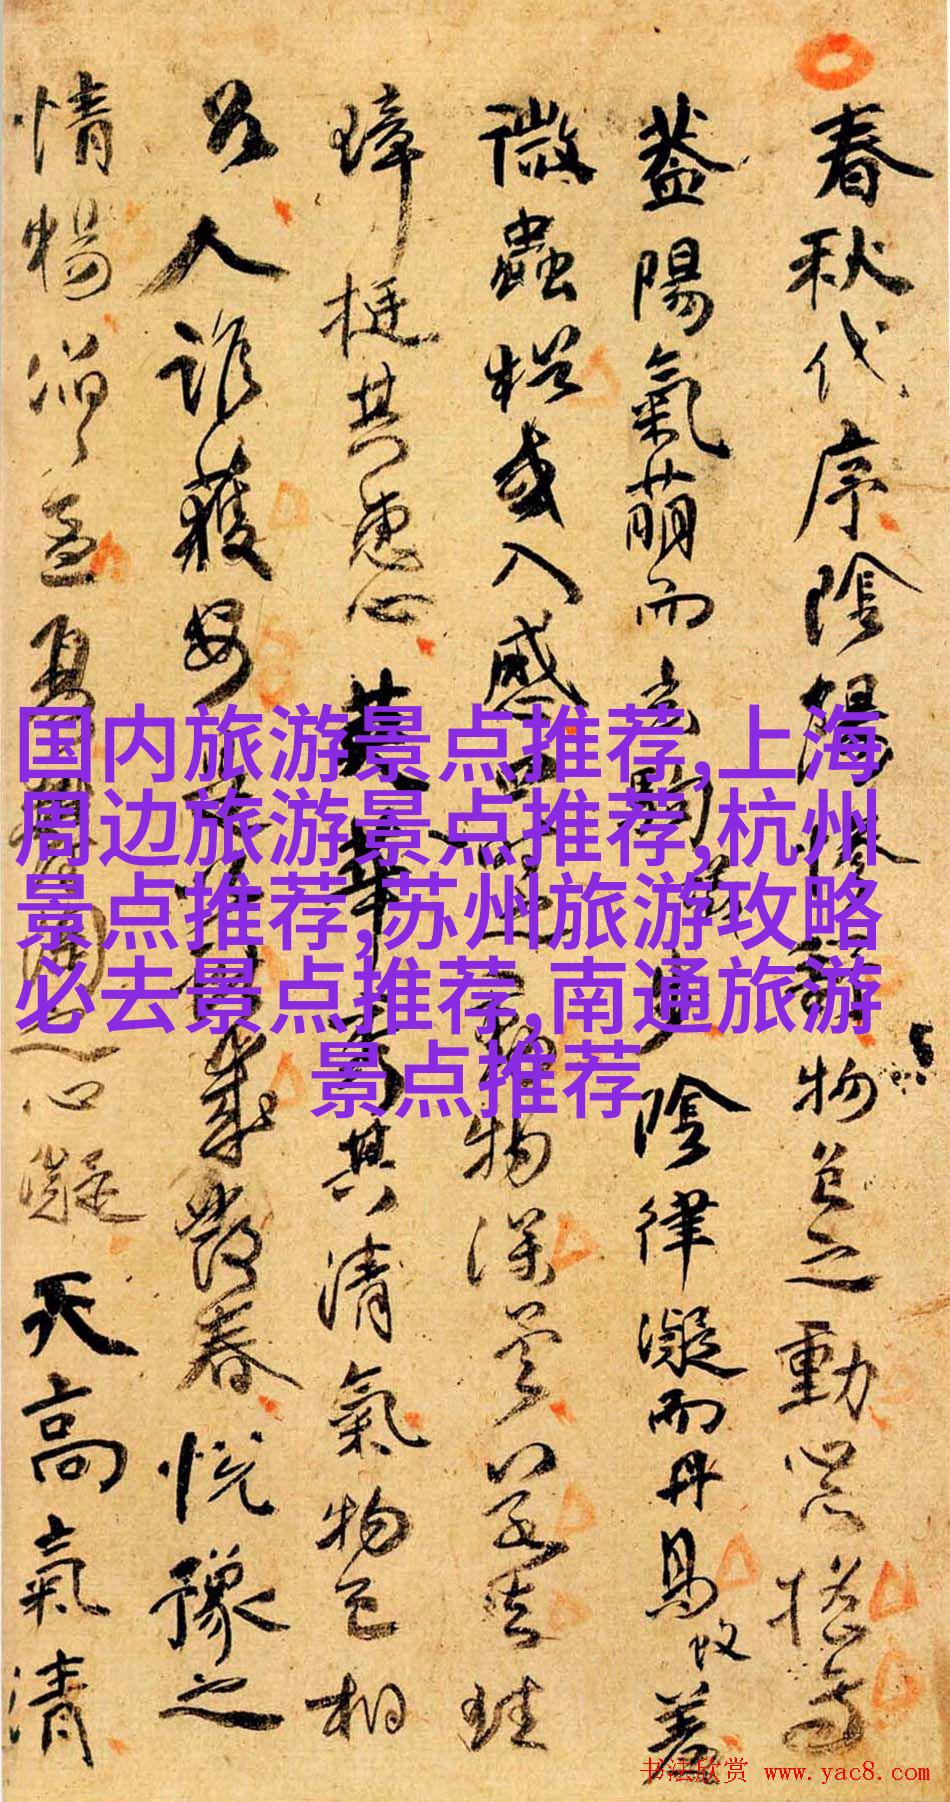 春秋代序陰陽慘舒物色之動心亦搖焉
蓋陽氣萌而玄駒步陰律凝而丹鳥蚊羞
微蟲猶或入感四時之動物深矣若夫珪
璋挺其惠心英華秀其清氣物色相
召人誰獲安是以獻歲發春悅豫之
情暢滔〻孟夏鬱陶之心凝天高氣清
国内旅游景点推荐,上海
周边旅游景点推荐,杭州
景点推荐,苏州旅游攻略
必去景点推荐,南通旅游
景点推荐
书法欣赏 www.yac8.com